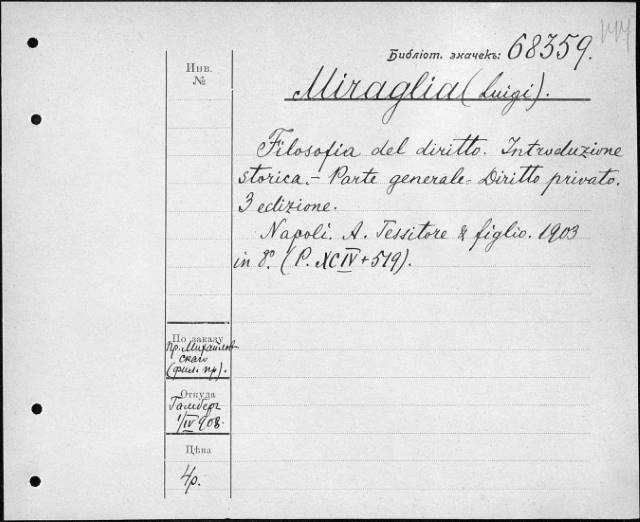 144
Библіот. значекъ: 68359.
Инв.
№
Miraglia (Luigi).
Filosofia del diritto. Introduzione
storica. – Parte generale – Diritto privato.
3 edizione.
Napoli. A. Tessitore & figlio. 1903
in 8°. (P. XCIV + 519).
По заказу
пр. Михайлов
скаго
(фил. пр).
Откуда
Гамберг
1/IV 908.
Цѣна
4р.